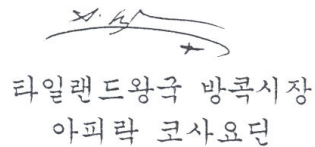 타일랜드왕국 방콕시장
아피락 코사요딘